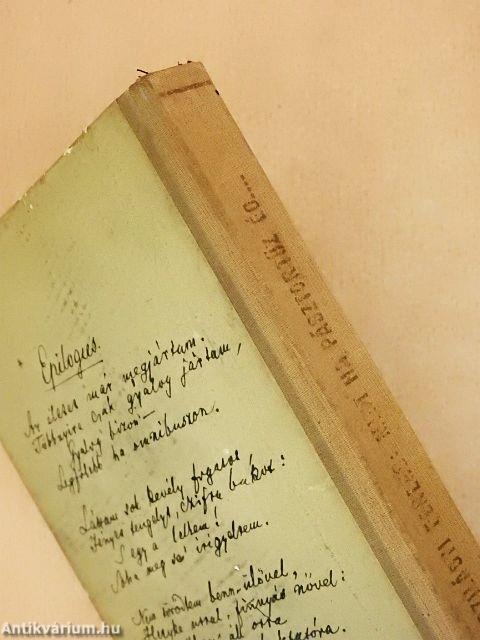 Epilogus.
Az életet már megjártam.
Többnyire csak gyalog jártam,
Gyalog bizon –
Legfölebb ha omnibuszon.
Láttam sok kevély fogatot
Fényes tengelyt, czifra bakot:
S egy a lelkem!
Soha meg se' irigyeltem.
Nem törődtem bennülővel,
Hetyke urral, finnyás nővel:
áll orra
MA PÁSZTORTŰZ ÉG....
Antikvárium.hu